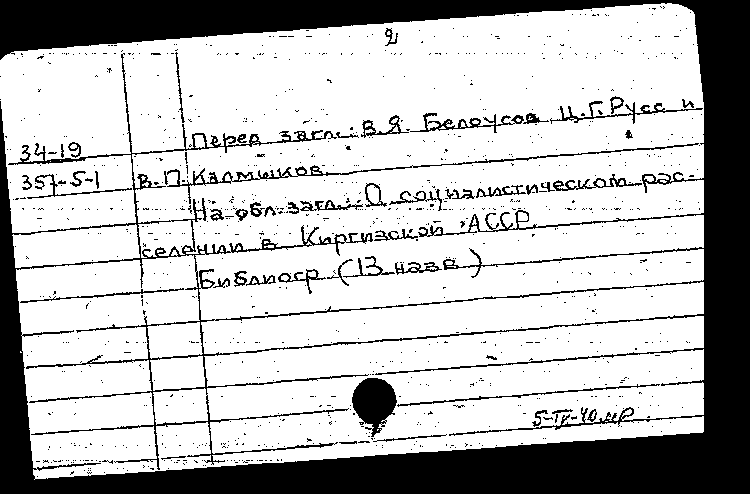 2
Перед загл.: В.Я. Белоусов, Ц.Г. Русс и
34-19
357-5-1 В.П. Калмыков.
На обл. загл.: О социалистическом рас-
селении в Киргизской АССР.
Библиогр (13 назв)
5-IV-40 мр.